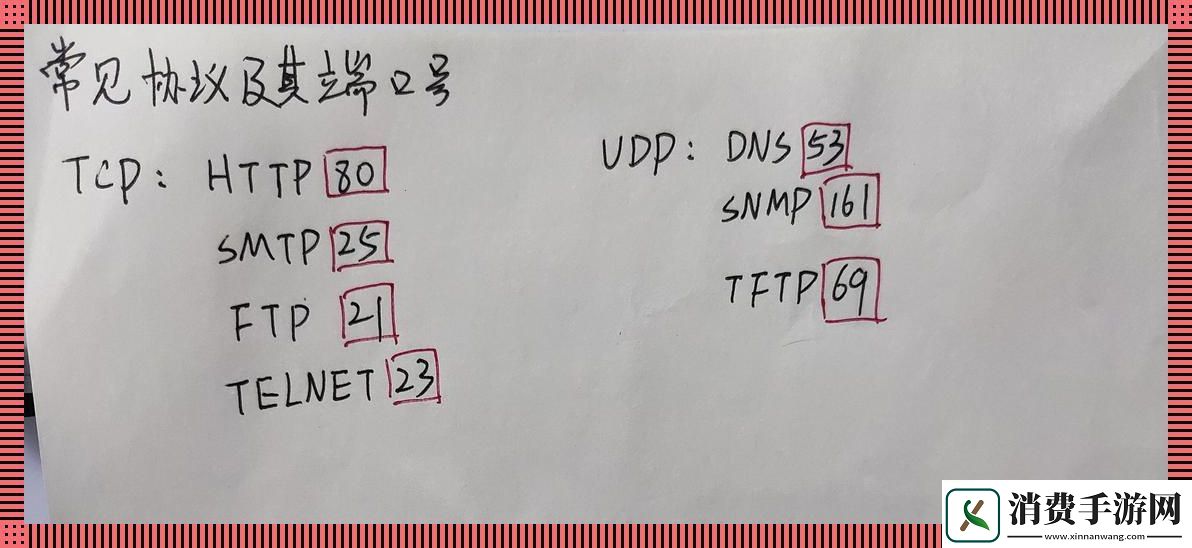 常见协议及其端口号
TCP: HTTP 80
SMTP 25
FTP 21
TELNET 23
UDP: DNS 53
SNMP 161
TFTP 69
消费手游网
www.xinnanwang.com